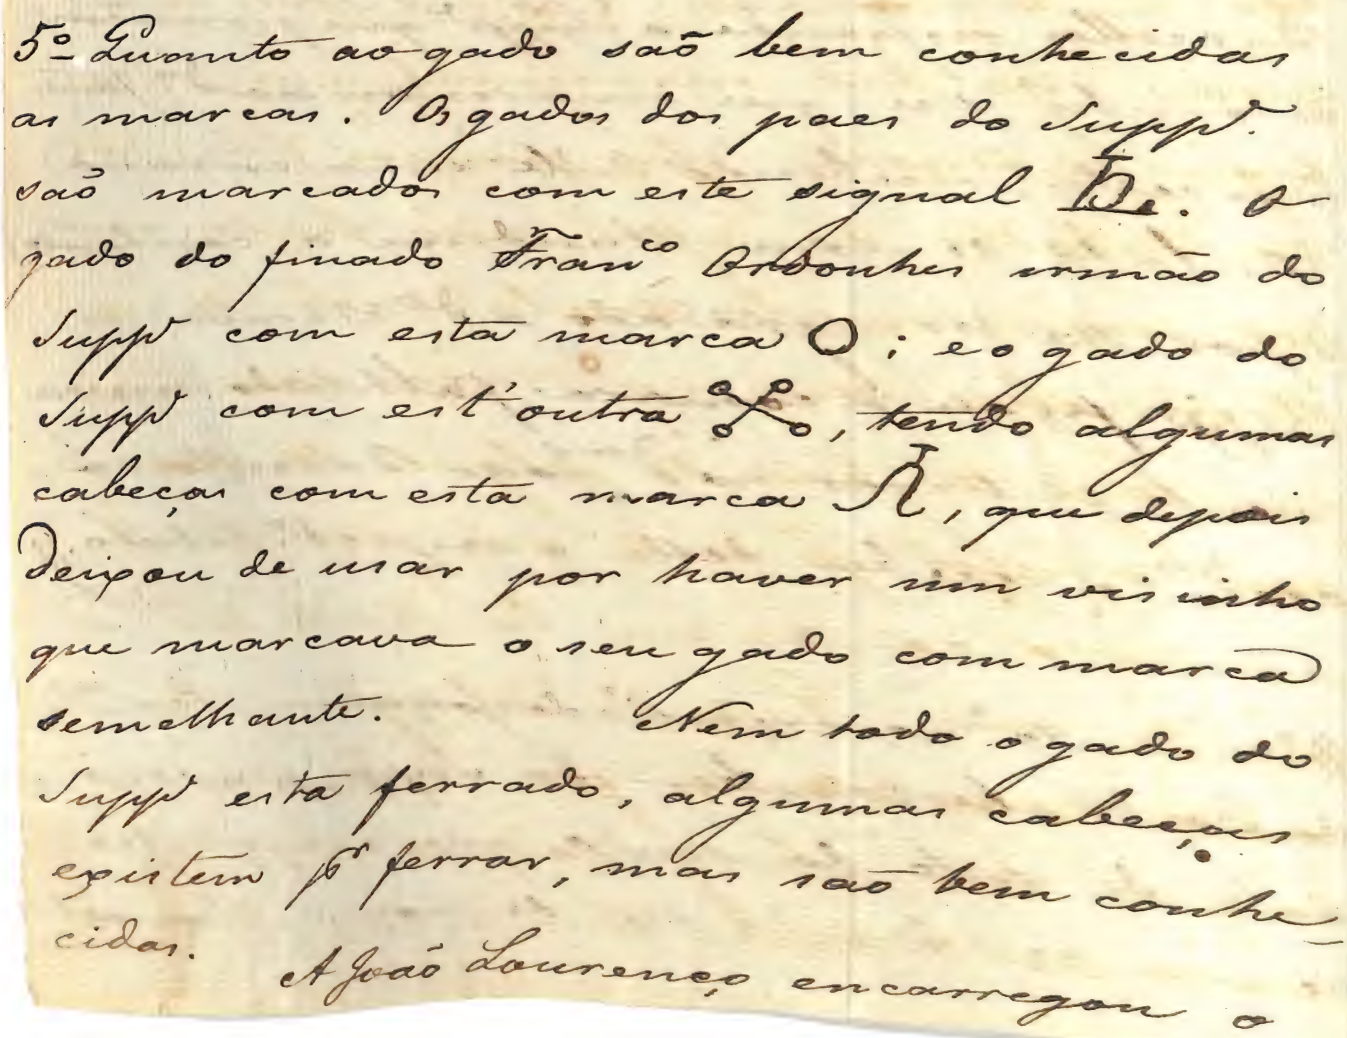 5º Quanto ao gado saõ bem conhecidas
as marcas. Os gados dos paes do Suppe.
saõ marcados com este signal . O
gado do finado Franco Ordonhes irmão do
Suppe com esta marca O ; e o gado do
Suppe com est'outra , tendo algumas
cabeças com esta marca , que depois
deixou de usar por haver um visinho
que marcava o seu gado com marca
semelhante. Nem todo o gado do
Suppe esta ferrado, algumas cabeças
existem pr ferrar, mas saõ bem conhe-
cidas.
A João Lourenço encarregou o